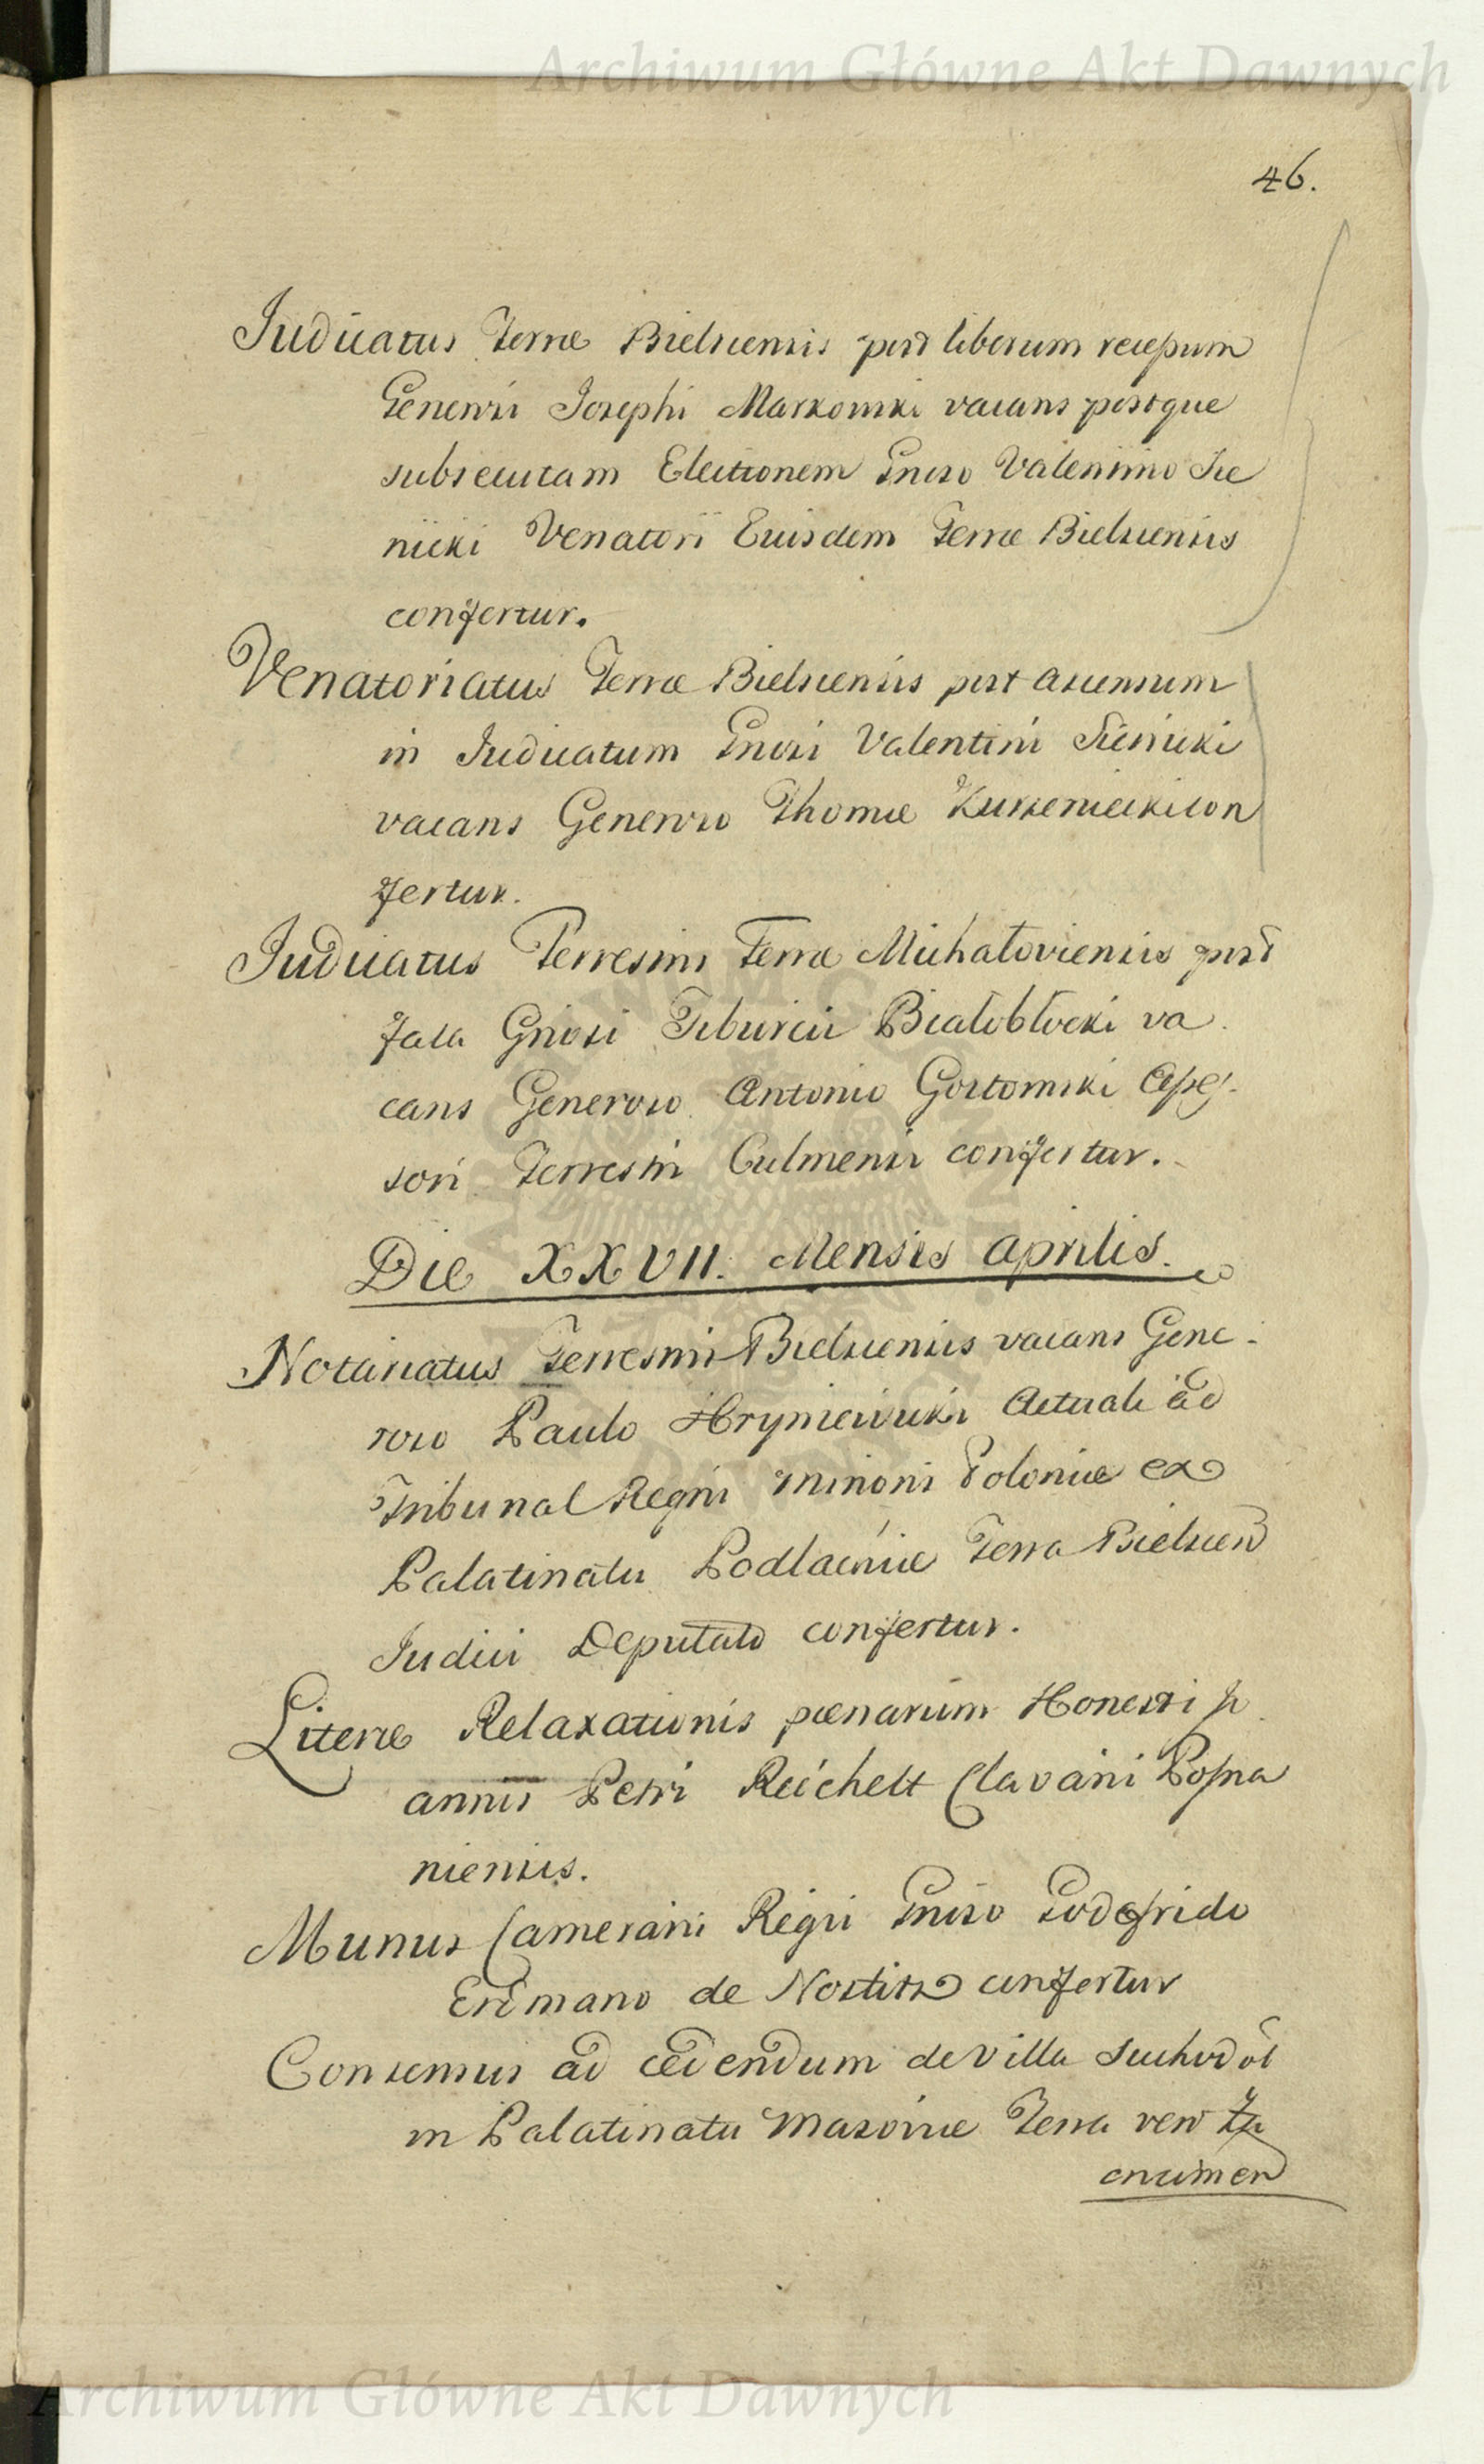 Archiwum Główne Akt Dawnych
46.
Judicatus Terræ Bielscensis post liberum recessum
Generosi Josephi Markowski vacans postque
subsecutam Electionem Gnoso Valentino Sie
nicki Venatori Eiusdem Terræ Bielscensis
confertur.
Venatoriatus Terræ Bielscensis post ascensum
in Judicatum Gnosi Valentini Sienicki
vacans Generoso Thomæ con
fertur.
Judicatus Terrestris Terræ Michałoviensis post
fata Gnosi Tiburcii Białobłocki va
cans Generoso Antonio Gostomski Asses-
sori Terrestri Culmensi confertur.
Die XXVII. Mensis Aprilis.
Notariatus Terrestris Bielscensis vacans Gene-
roso Paulo Hryniewicki Actuali ad
Tribunal Regni Minoris Poloniæ ex
Palatinatu Podlachiæ Terra Bielscen
Judici Deputato confertur.
Literæ Relaxationis pœnarum Honesti Jo
annis Petri Reichelt Clavarii Posna
niensis.
Munus Camerarii Regii Gnoso Godefrido
Erdmano de Nostitz confertur
Consensus ad cedendum de villa Suchodoł
in Palatinatu Masoviæ Terra vero Za
Archiwum Główne Akt Dawnych